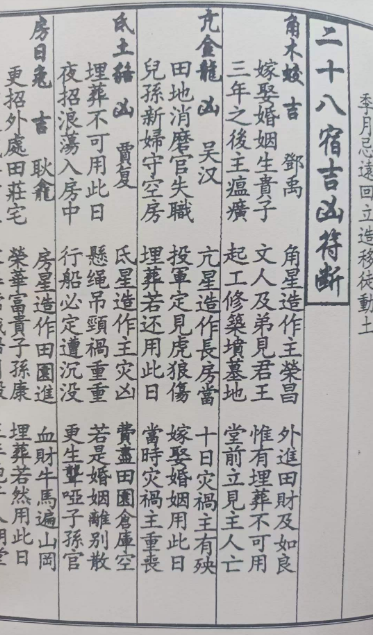 季月忌遠回立造移徒動土
二十八宿吉凶符断
角木蛟 吉 鄧禹 角星造作主榮昌 外進田財及如良
嫁娶婚姻生貴子 文人及弟見君王 惟有埋葬不可用
三年之後主瘟癀 起工修築墳墓地 堂前立見主人亡
亢金龍 凶 吴汉 亢星造作長房當 十日灾禍主有殃
田地消磨官失職 投軍定見虎狼傷 嫁娶婚姻用此日
兒孫新婦守空房 埋葬若还用此日 當時灾禍主重喪
氐土貉 凶 賈复 氐星造作主灾凶 費盡田園倉庫空
埋葬不可用此日 懸绳吊頸禍重重 若是婚姻離别散
夜招浪荡入房中 行船必定遭沉没 更生聾啞子孫官
房日兔 吉 耿龕 房星造作田園進 血財牛馬遍山岡
更招外處田莊宅 榮華富貴子孫康 埋葬若然用此日